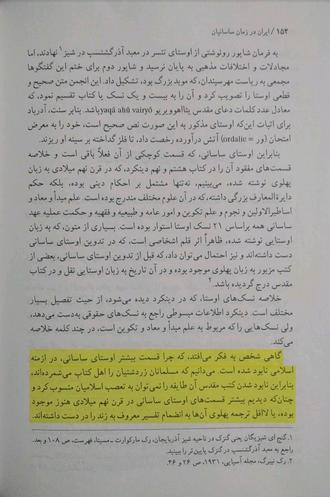 ۱۵۲ / ایران در زمان ساسانیان
به فرمان شاپور رونوشتی از اوستای تنسر در معبد آذرگشنسپ در شیز۱ نهادند، اما
مجادلات و اختلافات مذهبی به پایان نرسید و شاپور دوم برای ختم این گفتگوها
مجمعی به ریاست مهرسپندان، که موبد بزرگ بود، تشکیل داد. این انجمن متن صحیح و
قطعی اوستا را تصویب کرد و آن را به بیست و یک نسک یا کتاب تقسیم نمود، که
معادل عدد کلمات دعای مقدس یثااهوویریو yaqâ ahû vairyô باشد. بنابر سنت، آذرباد
برای اثبات این‌که اوستای مذکور به این صورت نص صحیح است، خود را به معرض
امتحان (ور = ordalie) آتش درآورده رخصت داد، تا فلز گداخته بر سینه او ریزند.
بنابراین اوستای ساسانی، که قسمت کوچکی از آن فعلاً باقی است و خلاصه
قسمت‌های مفقود آن را در کتاب هشتم و نهم دینکرد، که در قرن نهم میلادی به زبان
پهلوی نوشته شده، می‌بینیم، نه‌تنها مشتمل بر احکام دینی بوده، بلکه حکم
دایرةالمعارف بزرگی داشته، که در آن علوم مختلف مندرج بوده است. علم مبدأ و معاد و
اساطیرالاولین و نجوم و علم تکوین و امور عامه و طبیعیه و فقهیه و حکمت عملیه عهد
ساسانی همه براساس ۲۱ نسک اوستا استوار بوده است. بسیاری از متون، که به زبان
اوستایی نوشته شده، ظاهراً اثر قلم اشخاصی است، که در تدوین اوستای ساسانی
دست داشته‌اند و نیز احتمال می‌توان داد، که قبل از تدوین اوستای ساسانی، بعضی از
کتب مزبور به زبان پهلوی موجود بوده و در آن تاریخ به زبان اوستایی نقل و در کتاب
مقدس درج گردیده باشد.۲
خلاصه نسک‌های اوستا، که در دینکرد دیده می‌شود، از حیث تفصیل بسیار
مختلف است. دینکرد اطلاعات مبسوطی راجع به نسک‌های حقوقی به‌دست می‌دهد،
ولی نسک‌هایی را که مربوط به علم مبدأ و معاد و تکوین است، در چند کلمه خلاصه
می‌کند.
گاهی شخص به فکر می‌افتد، که چرا قسمت بیشتر اوستای ساسانی، در ازمنه
اسلامی نابود شده است. می‌دانیم که مسلمانان زردشتیان را اهل کتاب می‌شمرده‌اند،
بنابراین نابود شدن کتب مقدس آن طایفه را نمی‌توان به تعصب اسلامیان منسوب کرد و
چنان‌که دیدیم بیشتر قسمت‌های اوستای ساسانی در قرن نهم میلادی هنوز موجود
بوده، یا لااقل ترجمه پهلوی آن‌ها به انضمام تفسیر معروف به زند را در دست داشته‌اند.
۱. گنج ای شیزیگان یعنی گنزک در ناحیه شیز آذربایجان، رک مارکوارت ـ مسینا، فهرست، ص ۱۰۸ و بعد.
راجع به معبد آذرگشنسپ در گنزک پایین‌تر را ببینید.
۲. رک نیبرگ، مجله آسیایی، ۱۹۳۱، ص ۲۶ و ۴۶.